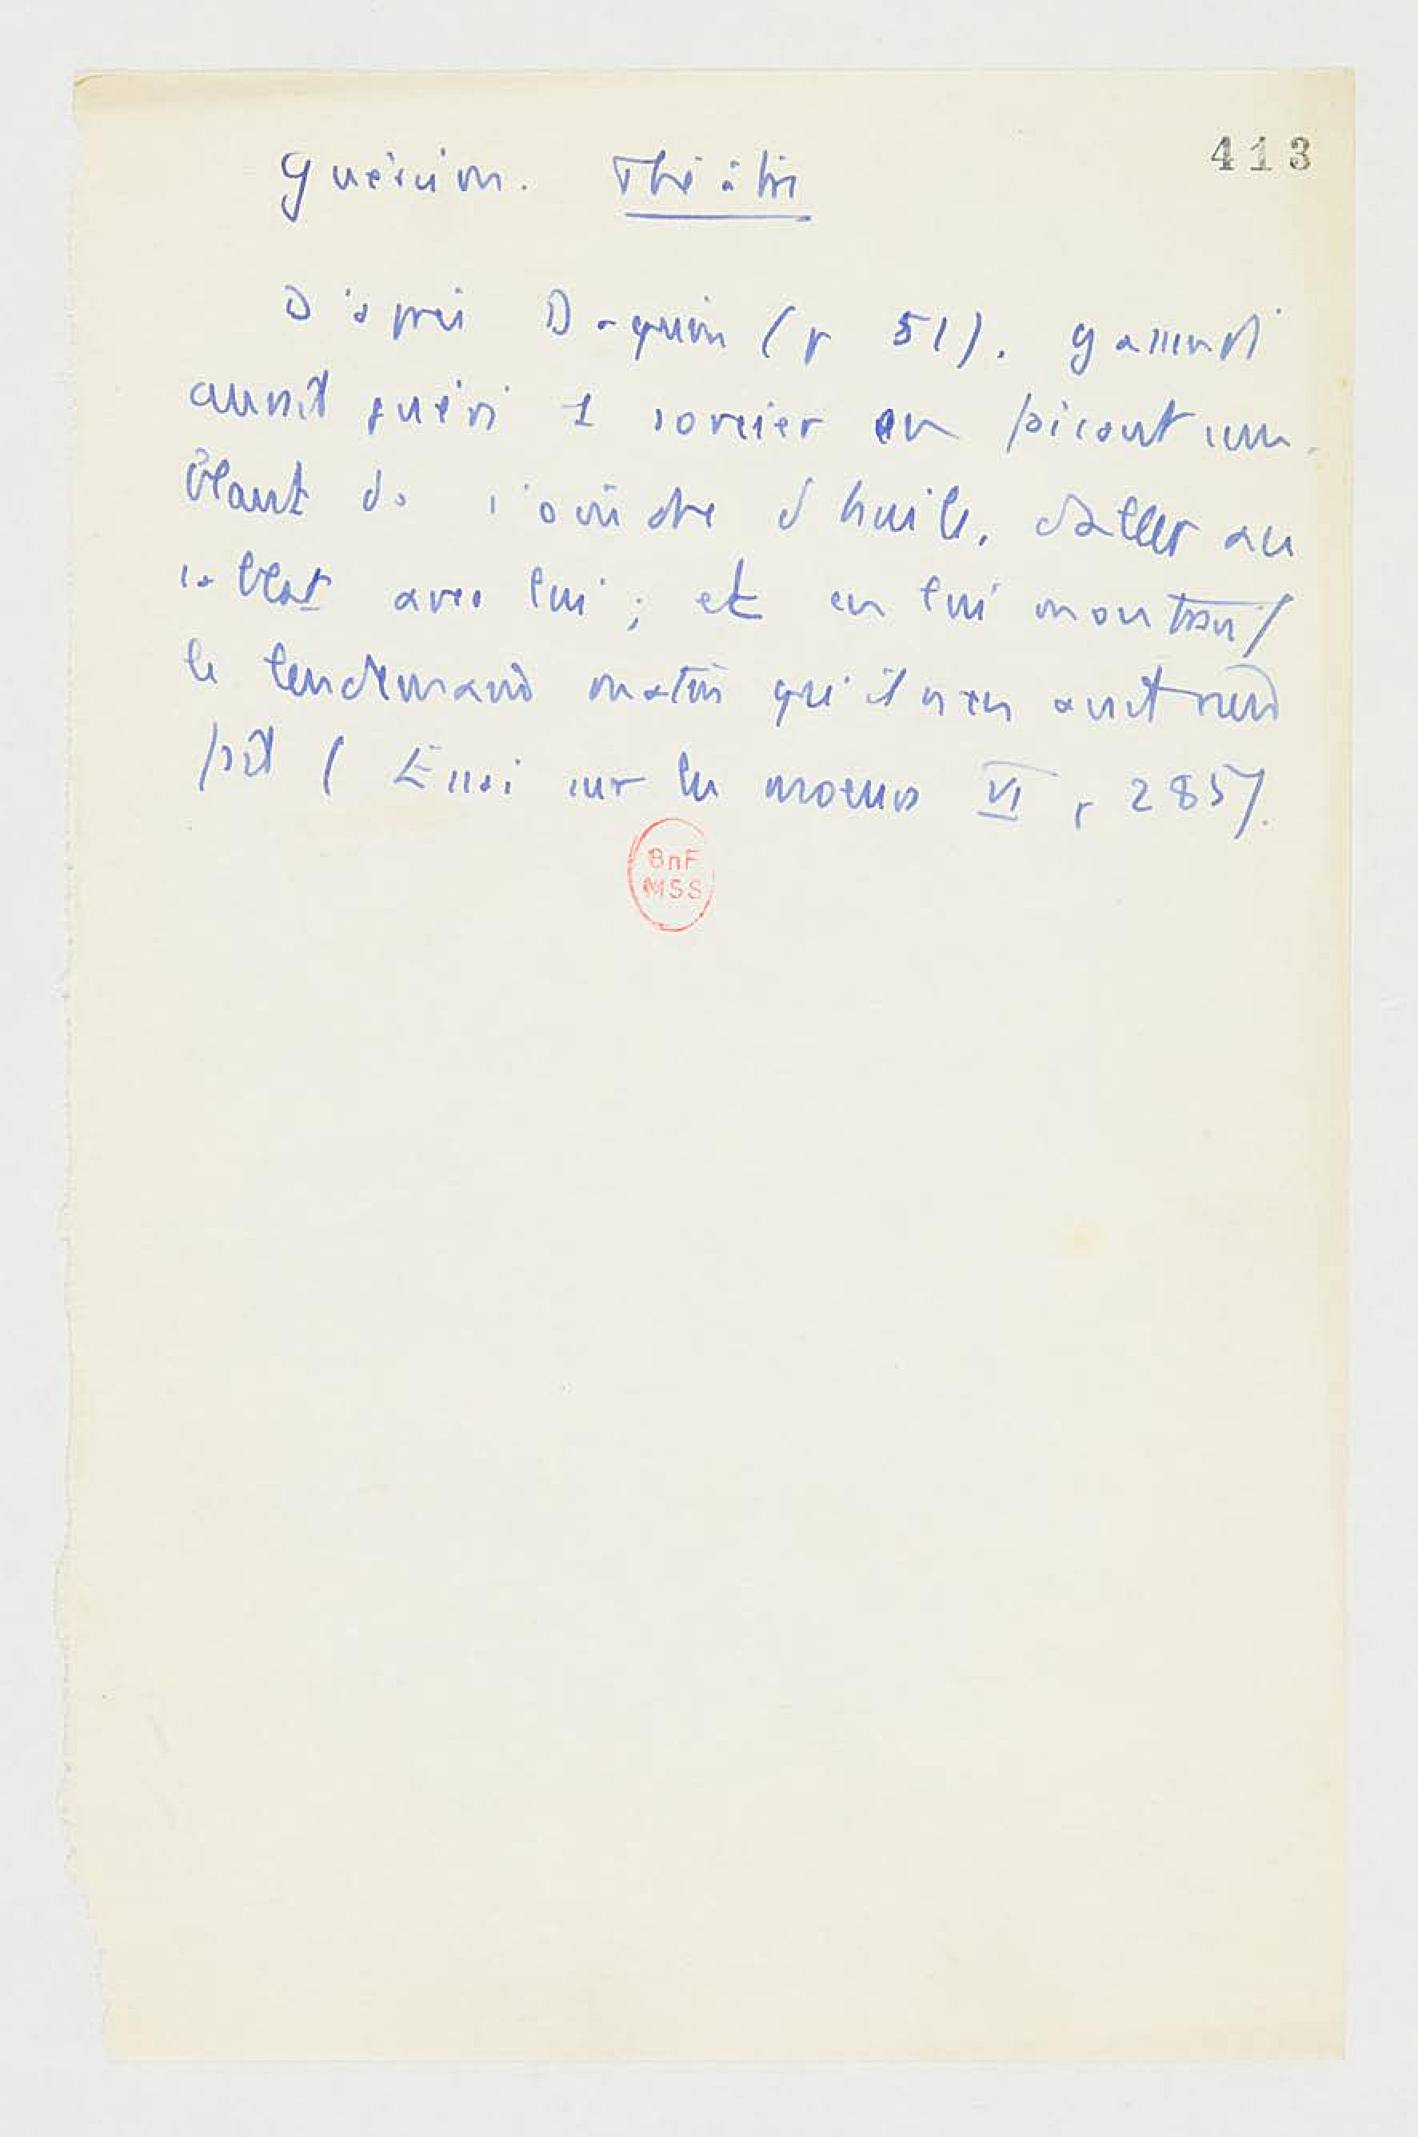 413
Guérison. Théâtre
D'après Daquin (p 51). Gassendi
aurait guéri 1 sorcier en faisant sem-
blant de s'oindre d'huile, d'aller au
sabbat avec lui ; et en lui montrant
le lendemain matin qu'il n'en avait rien
fait ( Essai sur les moeurs VI p 285).
BnF
MSS